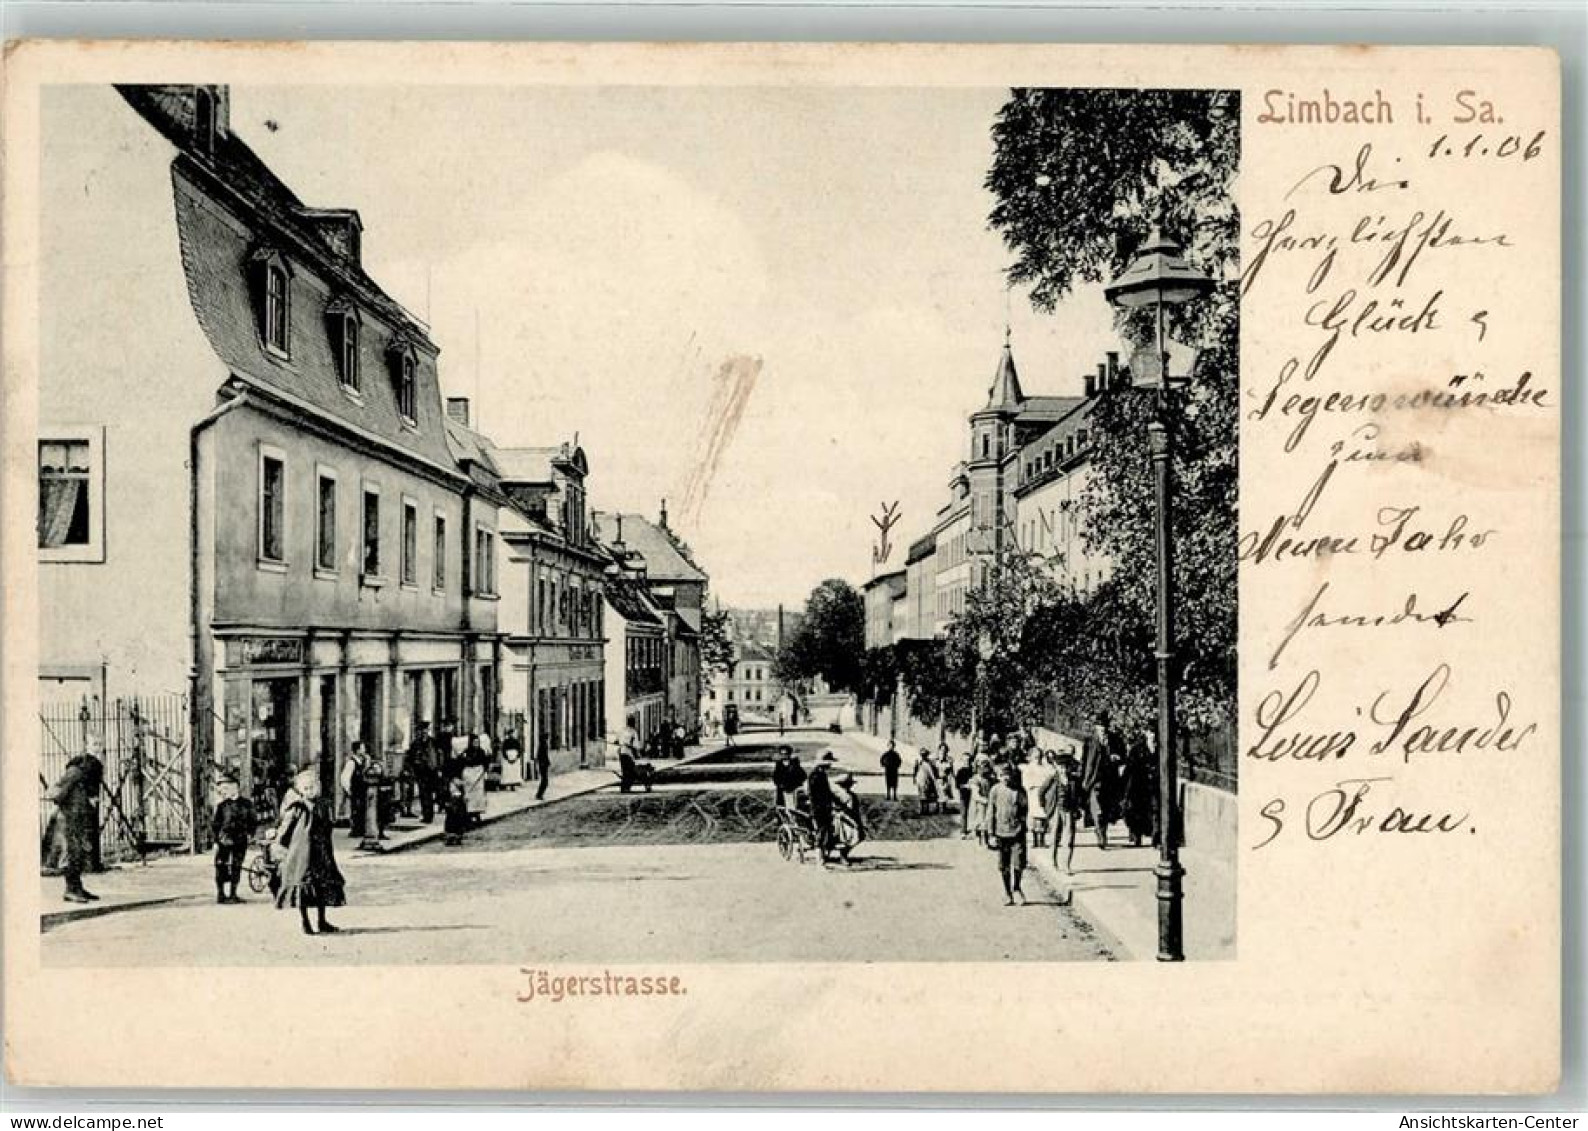 Limbach i. Sa.
1.1.06
Die
herzlichsten
Glück &
Segenswünsche
zum
Neuen Jahr
sendet
Louis Sander
& Frau.
Jägerstrasse.
oldthing.de
Ansichtskarten-Center